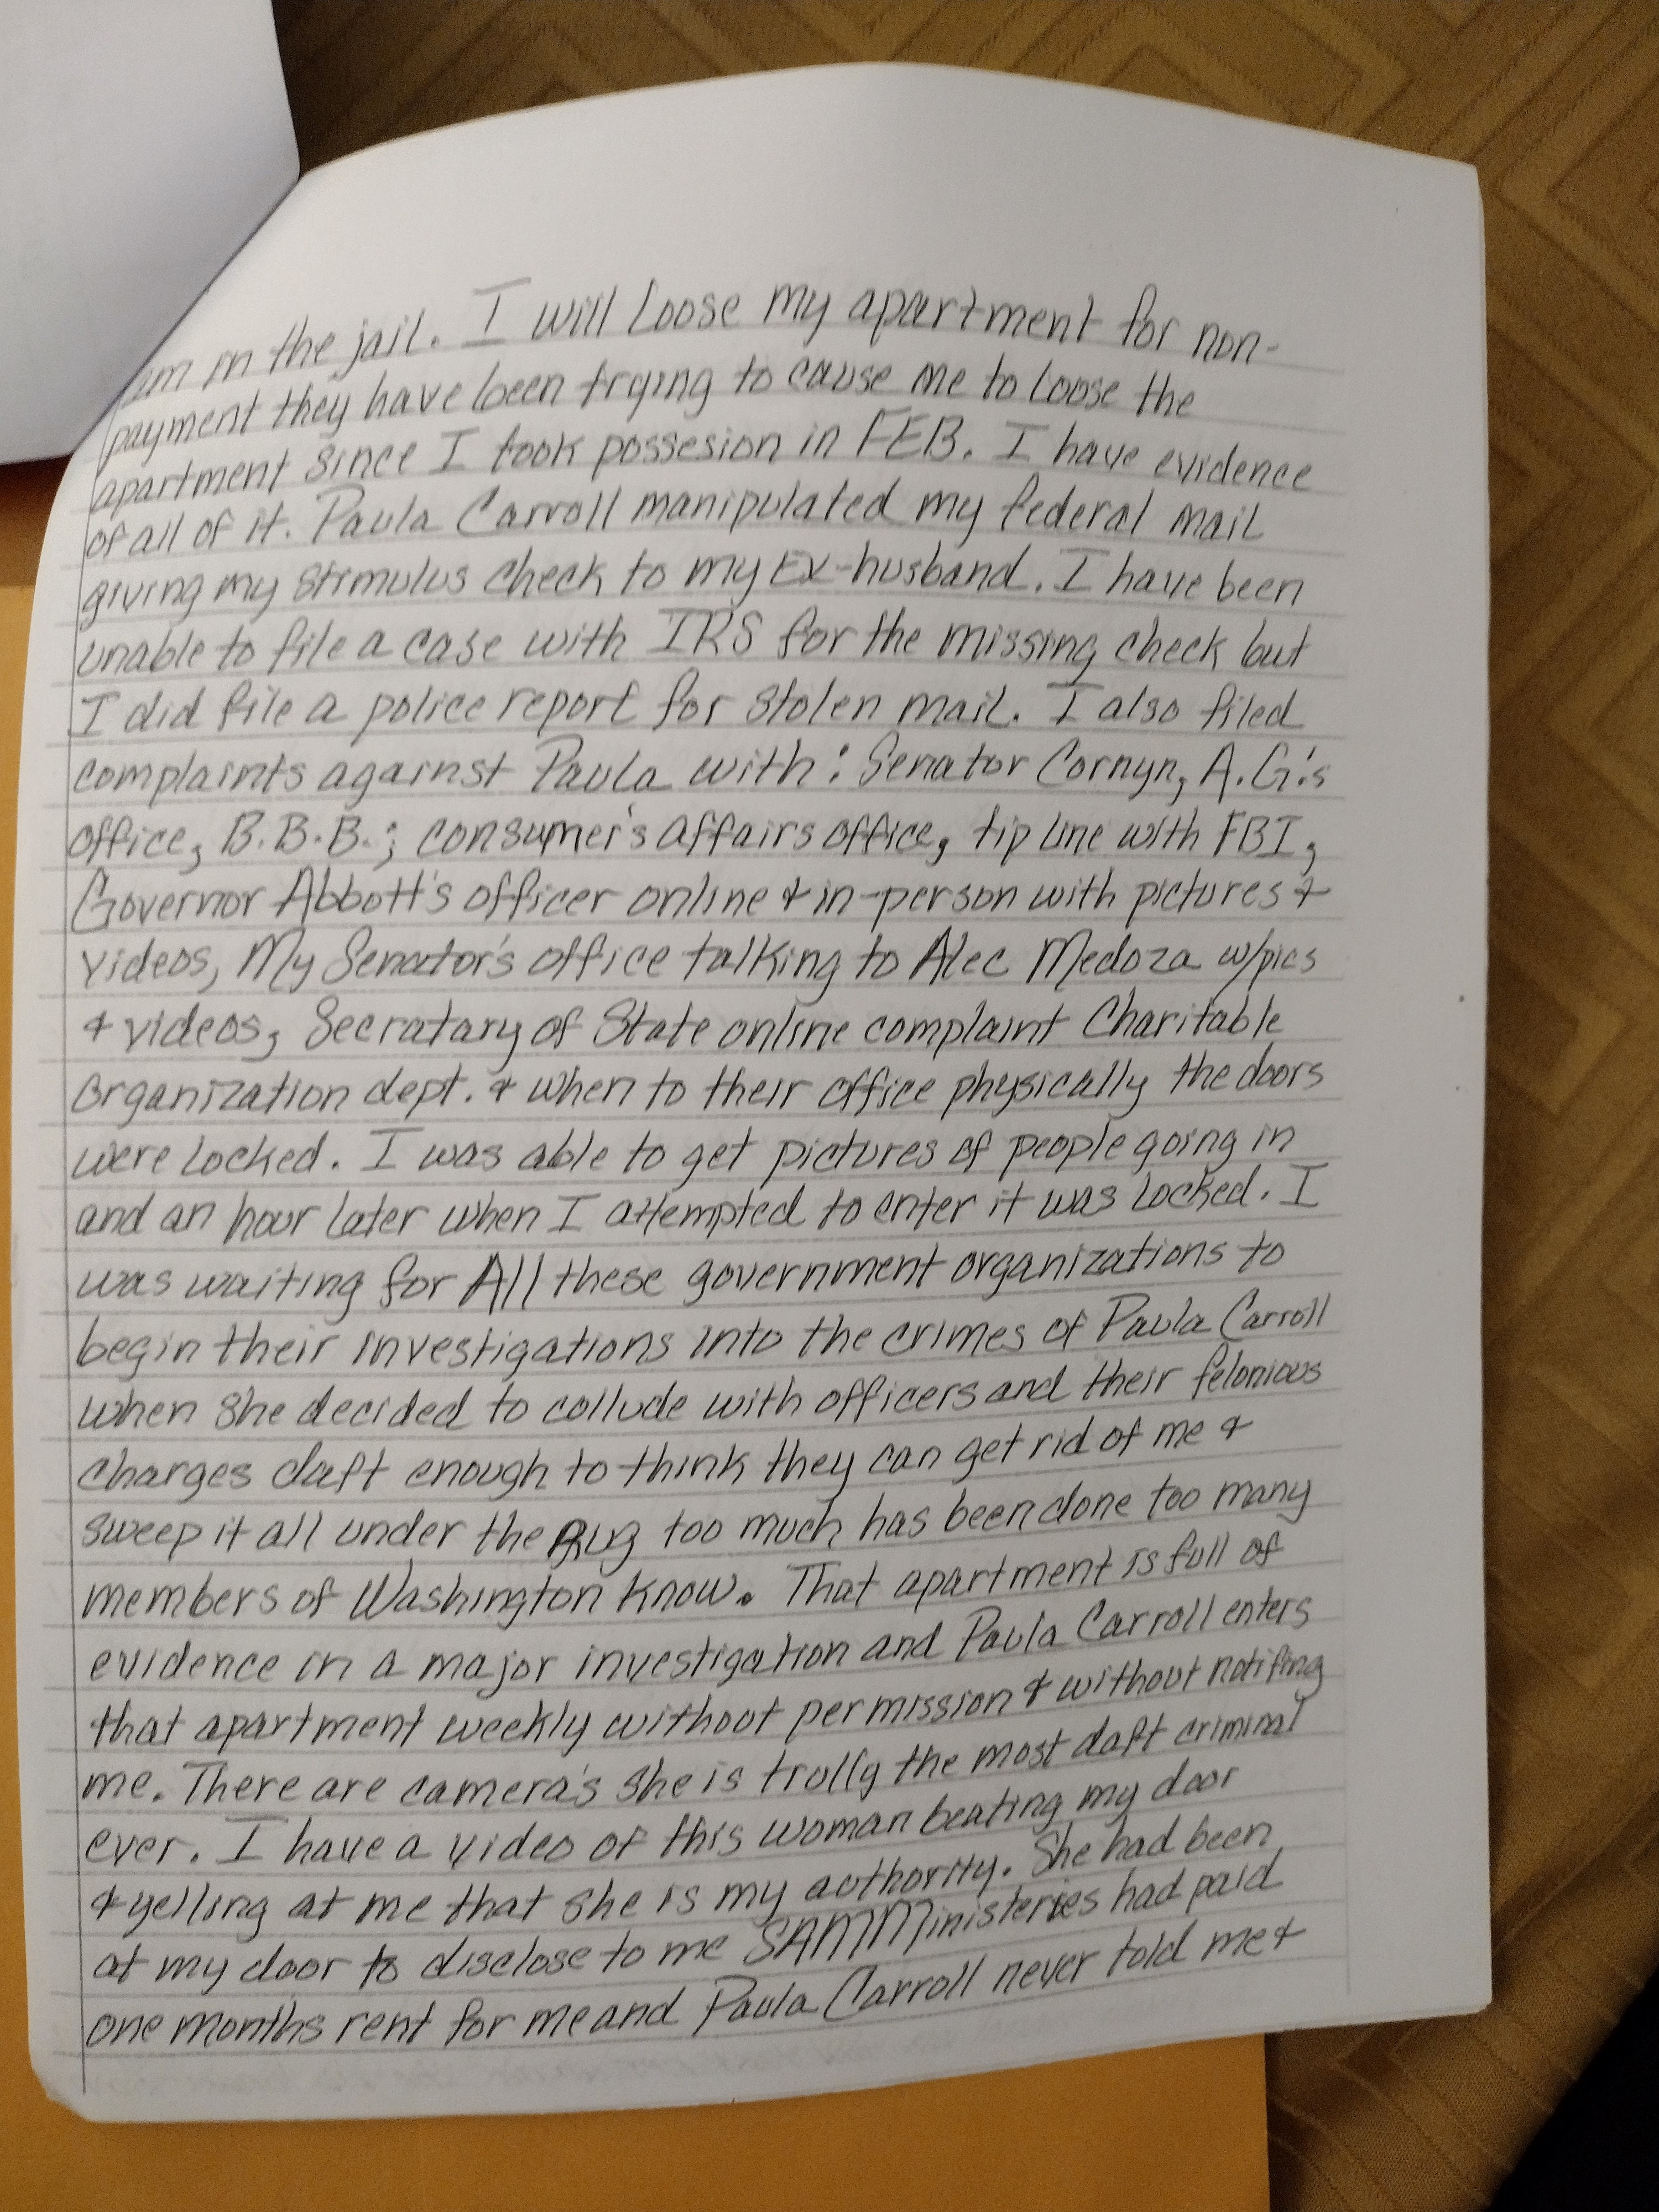 am in the jail. I will Loose my apartment for non-
payment they have been trying to cause me to Loose the
apartment since I took possesion in FEB. I have evidence
of all of it. Paula Carroll manipulated my federal mail
giving my stimulus check to my Ex-husband. I have been
unable to file a case with IRS for the missing check but
I did file a police report for stolen mail. I also filed
complaints against Paula with: Senator Cornyn, A.G.'s
office, B.B.B.; consumer's affairs office, tip line with FBI,
Governor Abbott's officer online & in-person with pictures &
videos, My Senator's office talking to Alec Medoza w/pics
& videos, Secratary of State online complaint Charitable
Organization dept. & when to their office physically the doors
were locked. I was able to get pictures of people going in
and an hour later when I attempted to enter it was locked. I
was waiting for All these government organizations to
begin their investigations into the crimes of Paula Carroll
when she decided to collude with officers and their felonious
charges daft enough to think they can get rid of me &
sweep it all under the Rug too much has been done too many
members of Washington know. That apartment is full of
evidence in a major investigation and Paula Carroll enters
that apartment weekly without permission & without notifing
me. There are camera's she is trully the most daft criminal
ever. I have a video of this woman beating my door
& yelling at me that she is my authority. She had been
at my door to disclose to me SAMMinisteries had paid
one months rent for me and Paula Carroll never told me &